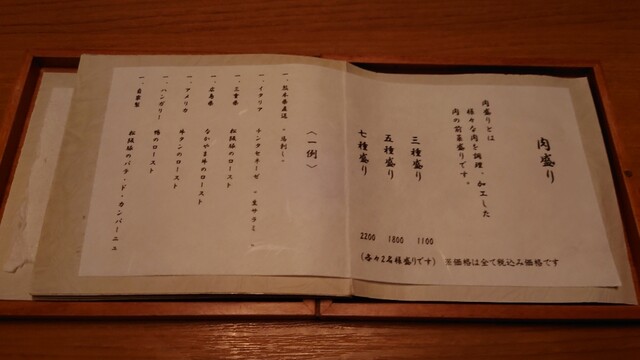 肉盛り
肉盛りとは
様々な肉を調理、加工した
肉の前菜盛りです。
三種盛り 1100
五種盛り 1800
七種盛り 2200
(各々2名様盛りです) ※価格は全て税込み価格です
〈一例〉
一、熊本県直送 "馬刺し"
一、イタリア キンタセネーゼ "生サラミ"
一、三重県 松阪豚のロースト
一、広島県 なかやま牛のロースト
一、アメリカ 牛タンのロースト
一、ハンガリー 鴨のロースト
一、自家製 松阪豚のパテ・ド・カンパーニュ